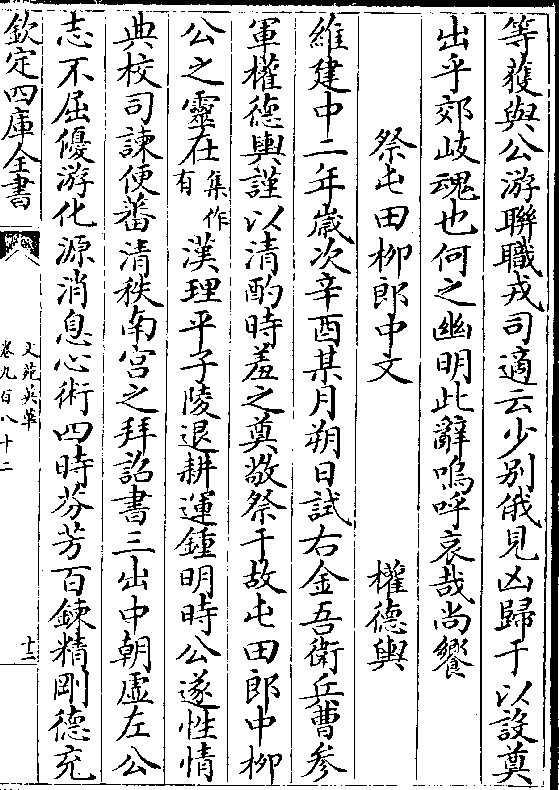 等獲與公游聯職戎司適云少別俄見凶歸于以設奠
出乎郊岐魂也何之幽明此辭嗚呼哀哉尚饗
祭屯田柳郎中文 權德輿
維建中二年嵗次辛酉某月朔日試右金吾衛兵曹參
軍權德輿謹以清酌時羞之奠敬祭于故屯田郎中柳
公之靈在集作有漢理平子陵退耕運鍾明時公遂性情
典校司諫便蕃清秩南宫之拜詔書三出中朝虛左公
志不屈優游化源消息心術四時芬芳百鍊精剛德充
欽定四庫全書
文苑英華
卷九百八十二
十二